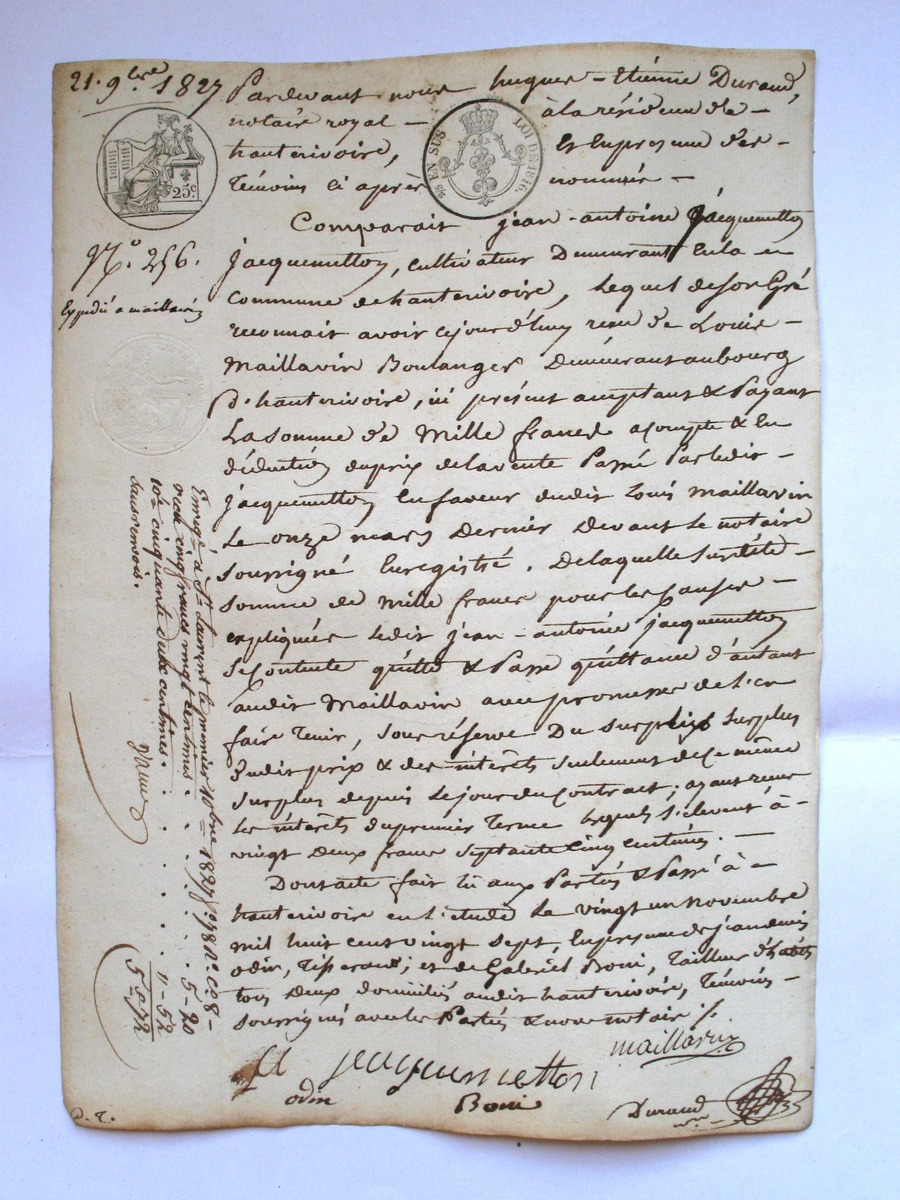 21. 9bre 1827
Pardevant nous hugues-Etiénne Durand,
notaire royal - à la résidence de -
hauterivoire, Et En presence des -
témoins ci après nommés -
EN SUS
LOI DE 1816.
25c
No. 256.
Expédié a maillavin
Comparait jean-antoine Jacquemetton
jacquemetton, cultivateur Demeurant En la
Commune de hauterivoire, Lequel de son Gré
reconnait avoir cejourd'huy reçu de Louis -
Maillavin Boulanger Demeurant au bourg
D'hauterivoire, ici présent acceptant & Payant
La somme de Mille francs a compte & En
déduction du prix de la vente Passé Par ledit -
jacquemetton En faveur dudit Louis Maillavin
Le onze mars Dernier Devant Le notaire
soussigné Enregistré. De laquelle susdite -
somme de Mille francs pour les Causes -
expliquées Ledit jean-antoine jacquemetton
Se Contente quitte & Passe quittance d'autant
audit Maillavin avec promesse de l'en
faire tenir, sous réserve Du surplus surplus
Dudit prix & des intérêts seulement de ce même
surplus depuis Le jour du contract; ayant reçu
Les intérêts du premier Terme Lequels s'élevent à -
vingt deux francs septante Cinq Centimes. -
Dont acte fait Lu aux Parties & Passé à -
hauterivoire en L'étude Le vingt un novembre
mil huit cent vingt sept, En presence de jean denis
odin, Tisserand; et de Gabriel Boni, Tailleur d'habits
tous deux domiciliés audit hauterivoire, Témoins -
soussignés avec les Parties & nous notaire ./.
Enregé a St. Laurent le premier 10bre 1827 fo. 78 Vo. Ce. 8 -
reçu cinq francs vingt centimes . . . 5 - 20
10e cinquante deux centimes. . . . 11 - 52
sans renvois. 5f 72
jacquemetton
maillavin
odin
Boni
Durand
D. t.